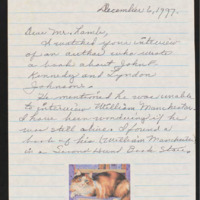 December 6, 1997.
Dear Mr. Lamb,
I watched your interview
of an author who wrote
a book about John F.
Kennedy and Lyndon
Johnson.
He mentioned he was unable
to interview William Manchester.
I have been wondering if he
was still alive. I found a
book of his (William Manchester)
in a Second Hand Book Store.